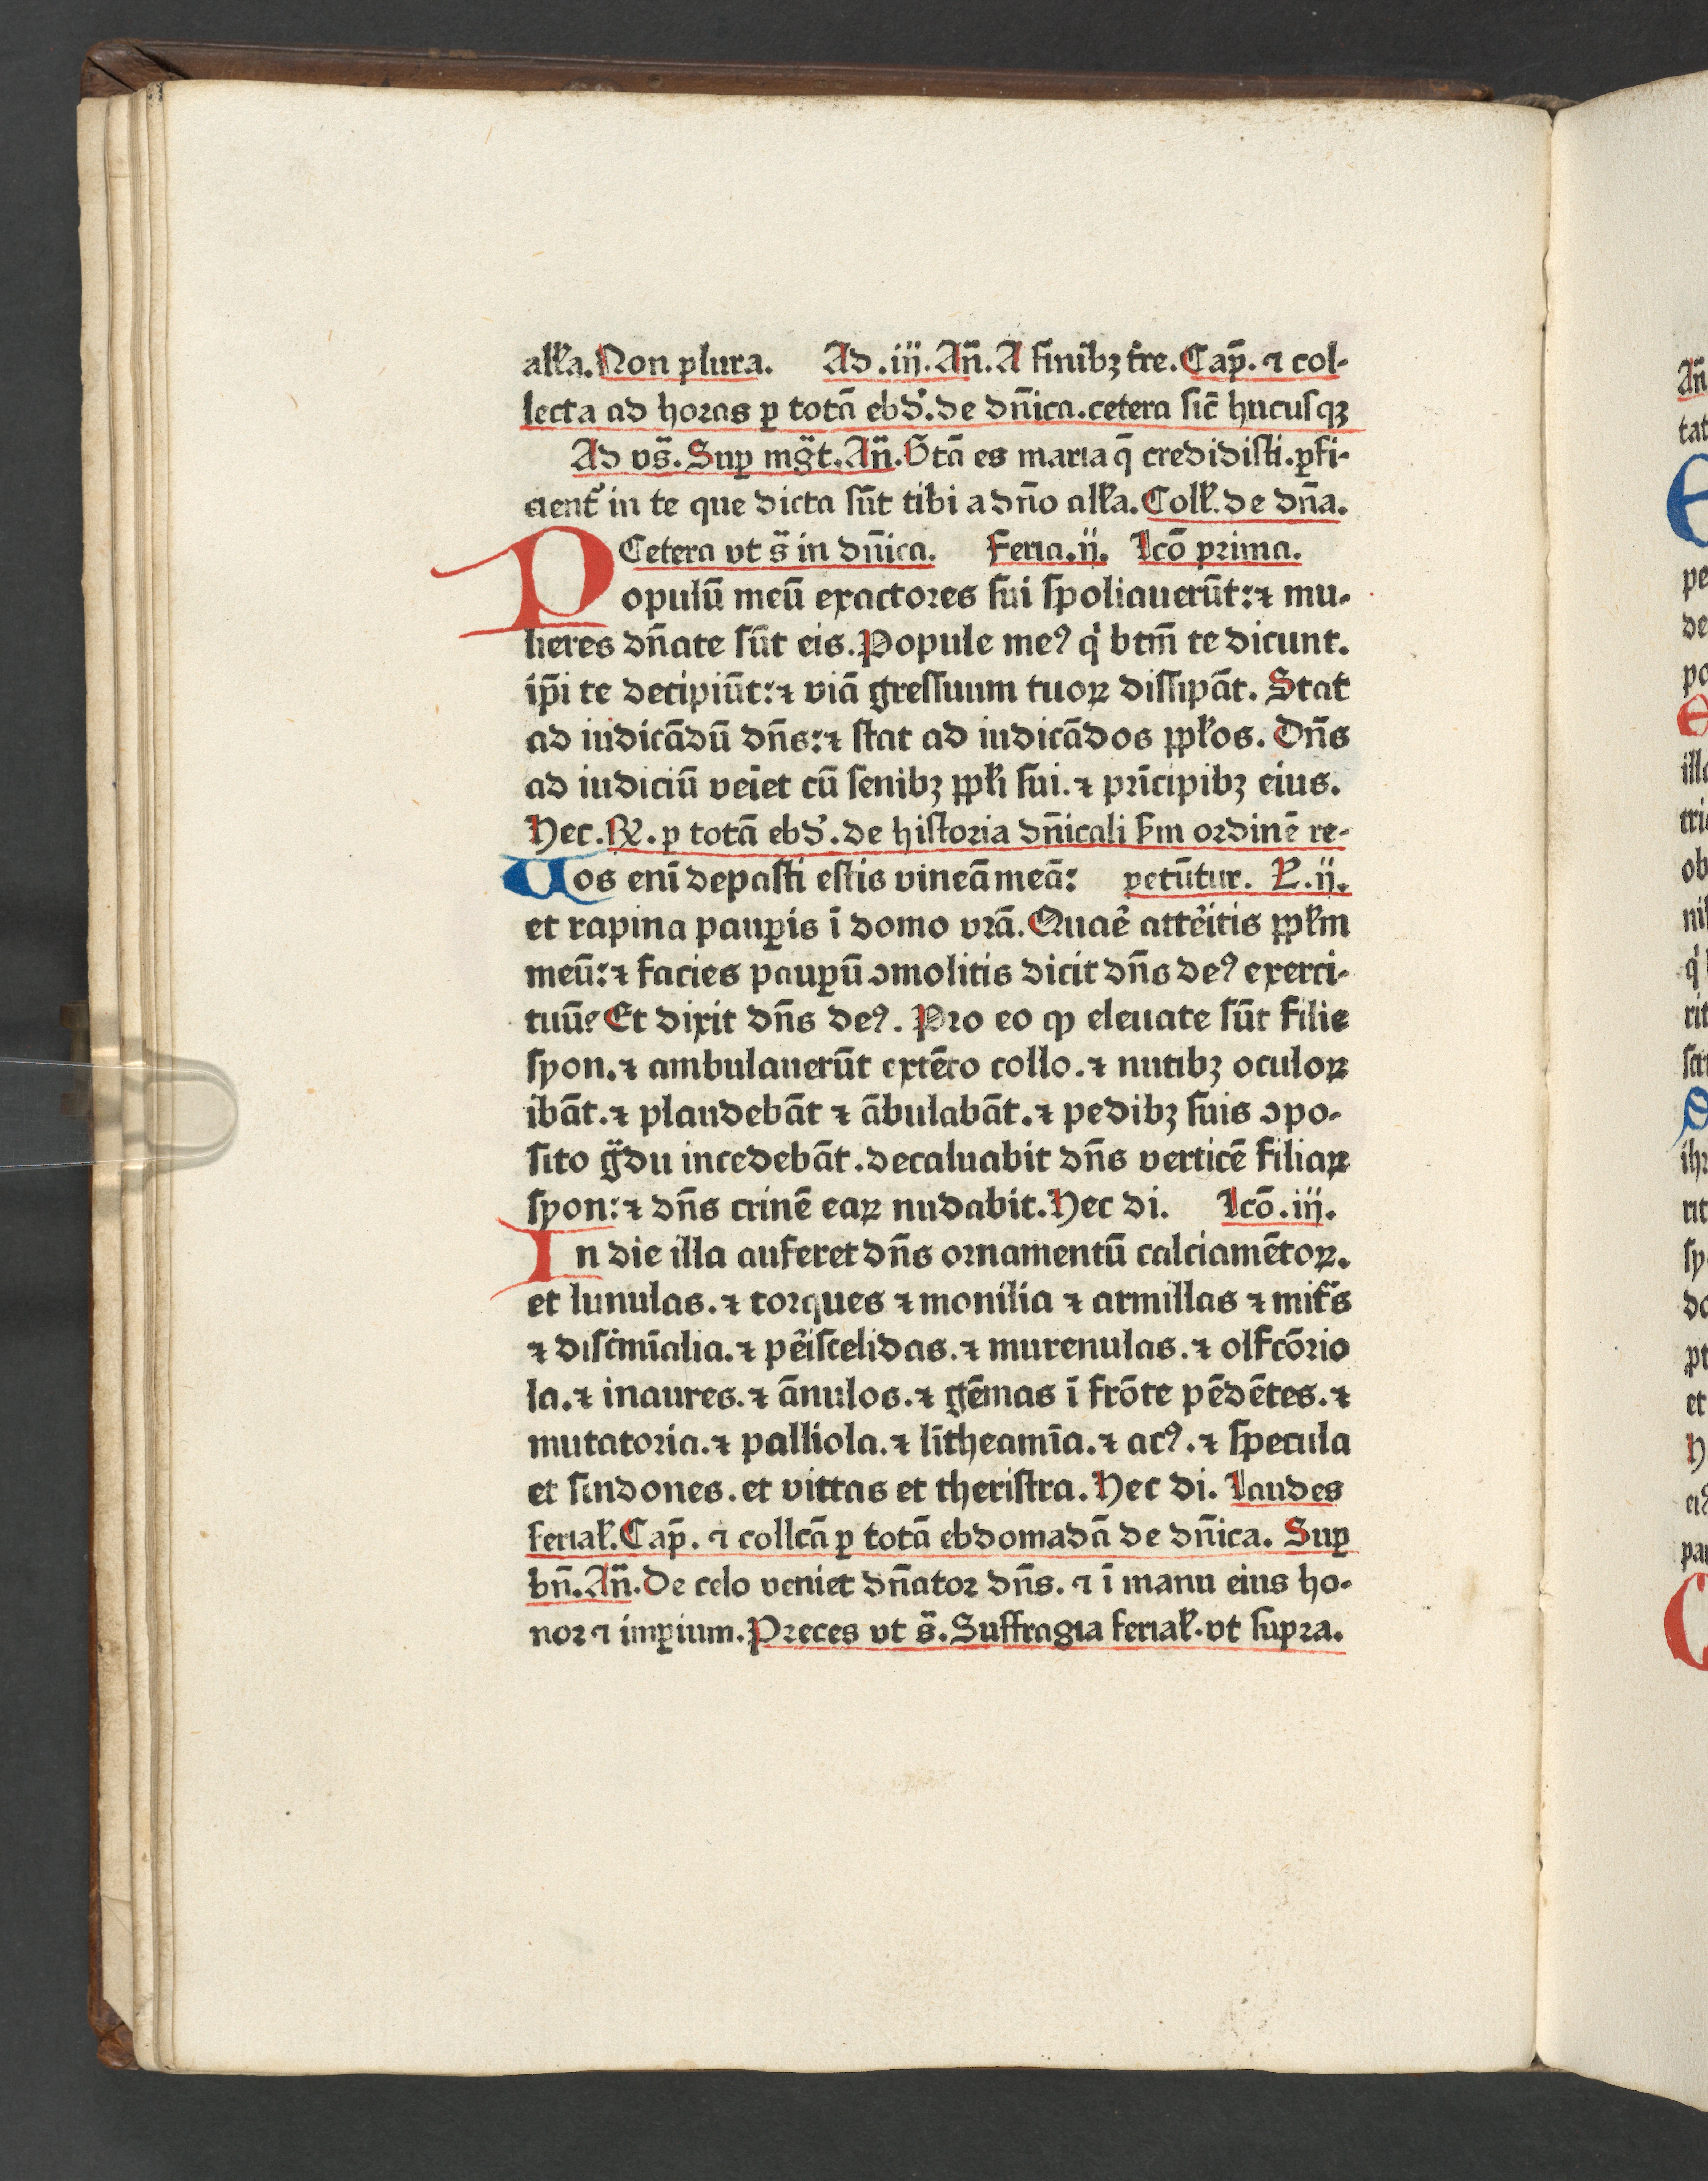 allʼa. Non plura. Ad .iij. Añ. A finibꝫ t̉re. Cap̄. ⁊ col-
lecta ad horas ꝑ totā ebdʼ. de dñica. cetera sic̄ hucusqꝫ
Ad vs̄. Suꝑ mg̃t. Añ. Btā es maria q̄ credidisti. ꝑfi-
cient᷑ in te que dicta sūt tibi a dño allʼa. Collʼ. de dña.
Cetera vt s̄ in dñica. Feria .ij. Lcō prima.
Populū meū exactores sui spoliauerūt: ⁊ mu-
lieres dñate sūt eis. Popule meꝰ qͥ btm̄ te dicunt.
ip̄i te decipiūt: ⁊ viā gressuum tuoꝝ dissipāt. Stat
ad iudicādū dñs: ⁊ stat ad iudicādos ppłos. Dñs
ad iudiciū veīet cū senibꝫ ppłi sui. ⁊ prīcipibꝫ eius.
Hec. ℞. ꝑ totā ebdʼ. de historia dñicali ẜm ordinē re-
Uos enī depasti estis vineā meā: petūtur. L. ij.
et rapina pauꝑis ī domo vrā. Quaē att̉eitis ppłm
meū: ⁊ facies pauꝑū ꝯmolitis dicit dñs deꝰ exerci-
tuū? Et dixit dñs deꝰ. Pro eo ꝙ eleuate sūt filie
syon. ⁊ ambulauerūt extēto collo. ⁊ nutibꝫ oculoꝝ
ibāt. ⁊ plaudebāt ⁊ ābulabāt. ⁊ pedibꝫ suis ꝯpo-
sito g̃du incedebāt. decaluabit dñs verticē filiaꝝ
syon: ⁊ dñs crinē eaꝝ nudabit. Hec di. Lcō .iij.
In die illa auferet dñs ornamentū calciamētoꝝ.
et lunulas. ⁊ torques ⁊ monilia ⁊ armillas ⁊ mit᷑s
⁊ discͥmīalia. ⁊ p̉eiscelidas. ⁊ murenulas. ⁊ olfcōrio
la. ⁊ inaures. ⁊ ānulos. ⁊ gēmas ī frōte pēdētes. ⁊
mutatoria. ⁊ palliola. ⁊ lītheamīa. ⁊ acꝰ. ⁊ specula
et sindones. et vittas et theristra. Hec di. Laudes
ferialʼ. Cap̄. ⁊ collcā ꝑ totā ebdomadā de dñica. Suꝑ
bñ. Añ. De celo veniet dñator dñs. ⁊ ī manu eius ho-
nor ⁊ imꝑium. Preces vt s̄. Suffragia ferialʼ. vt supra.